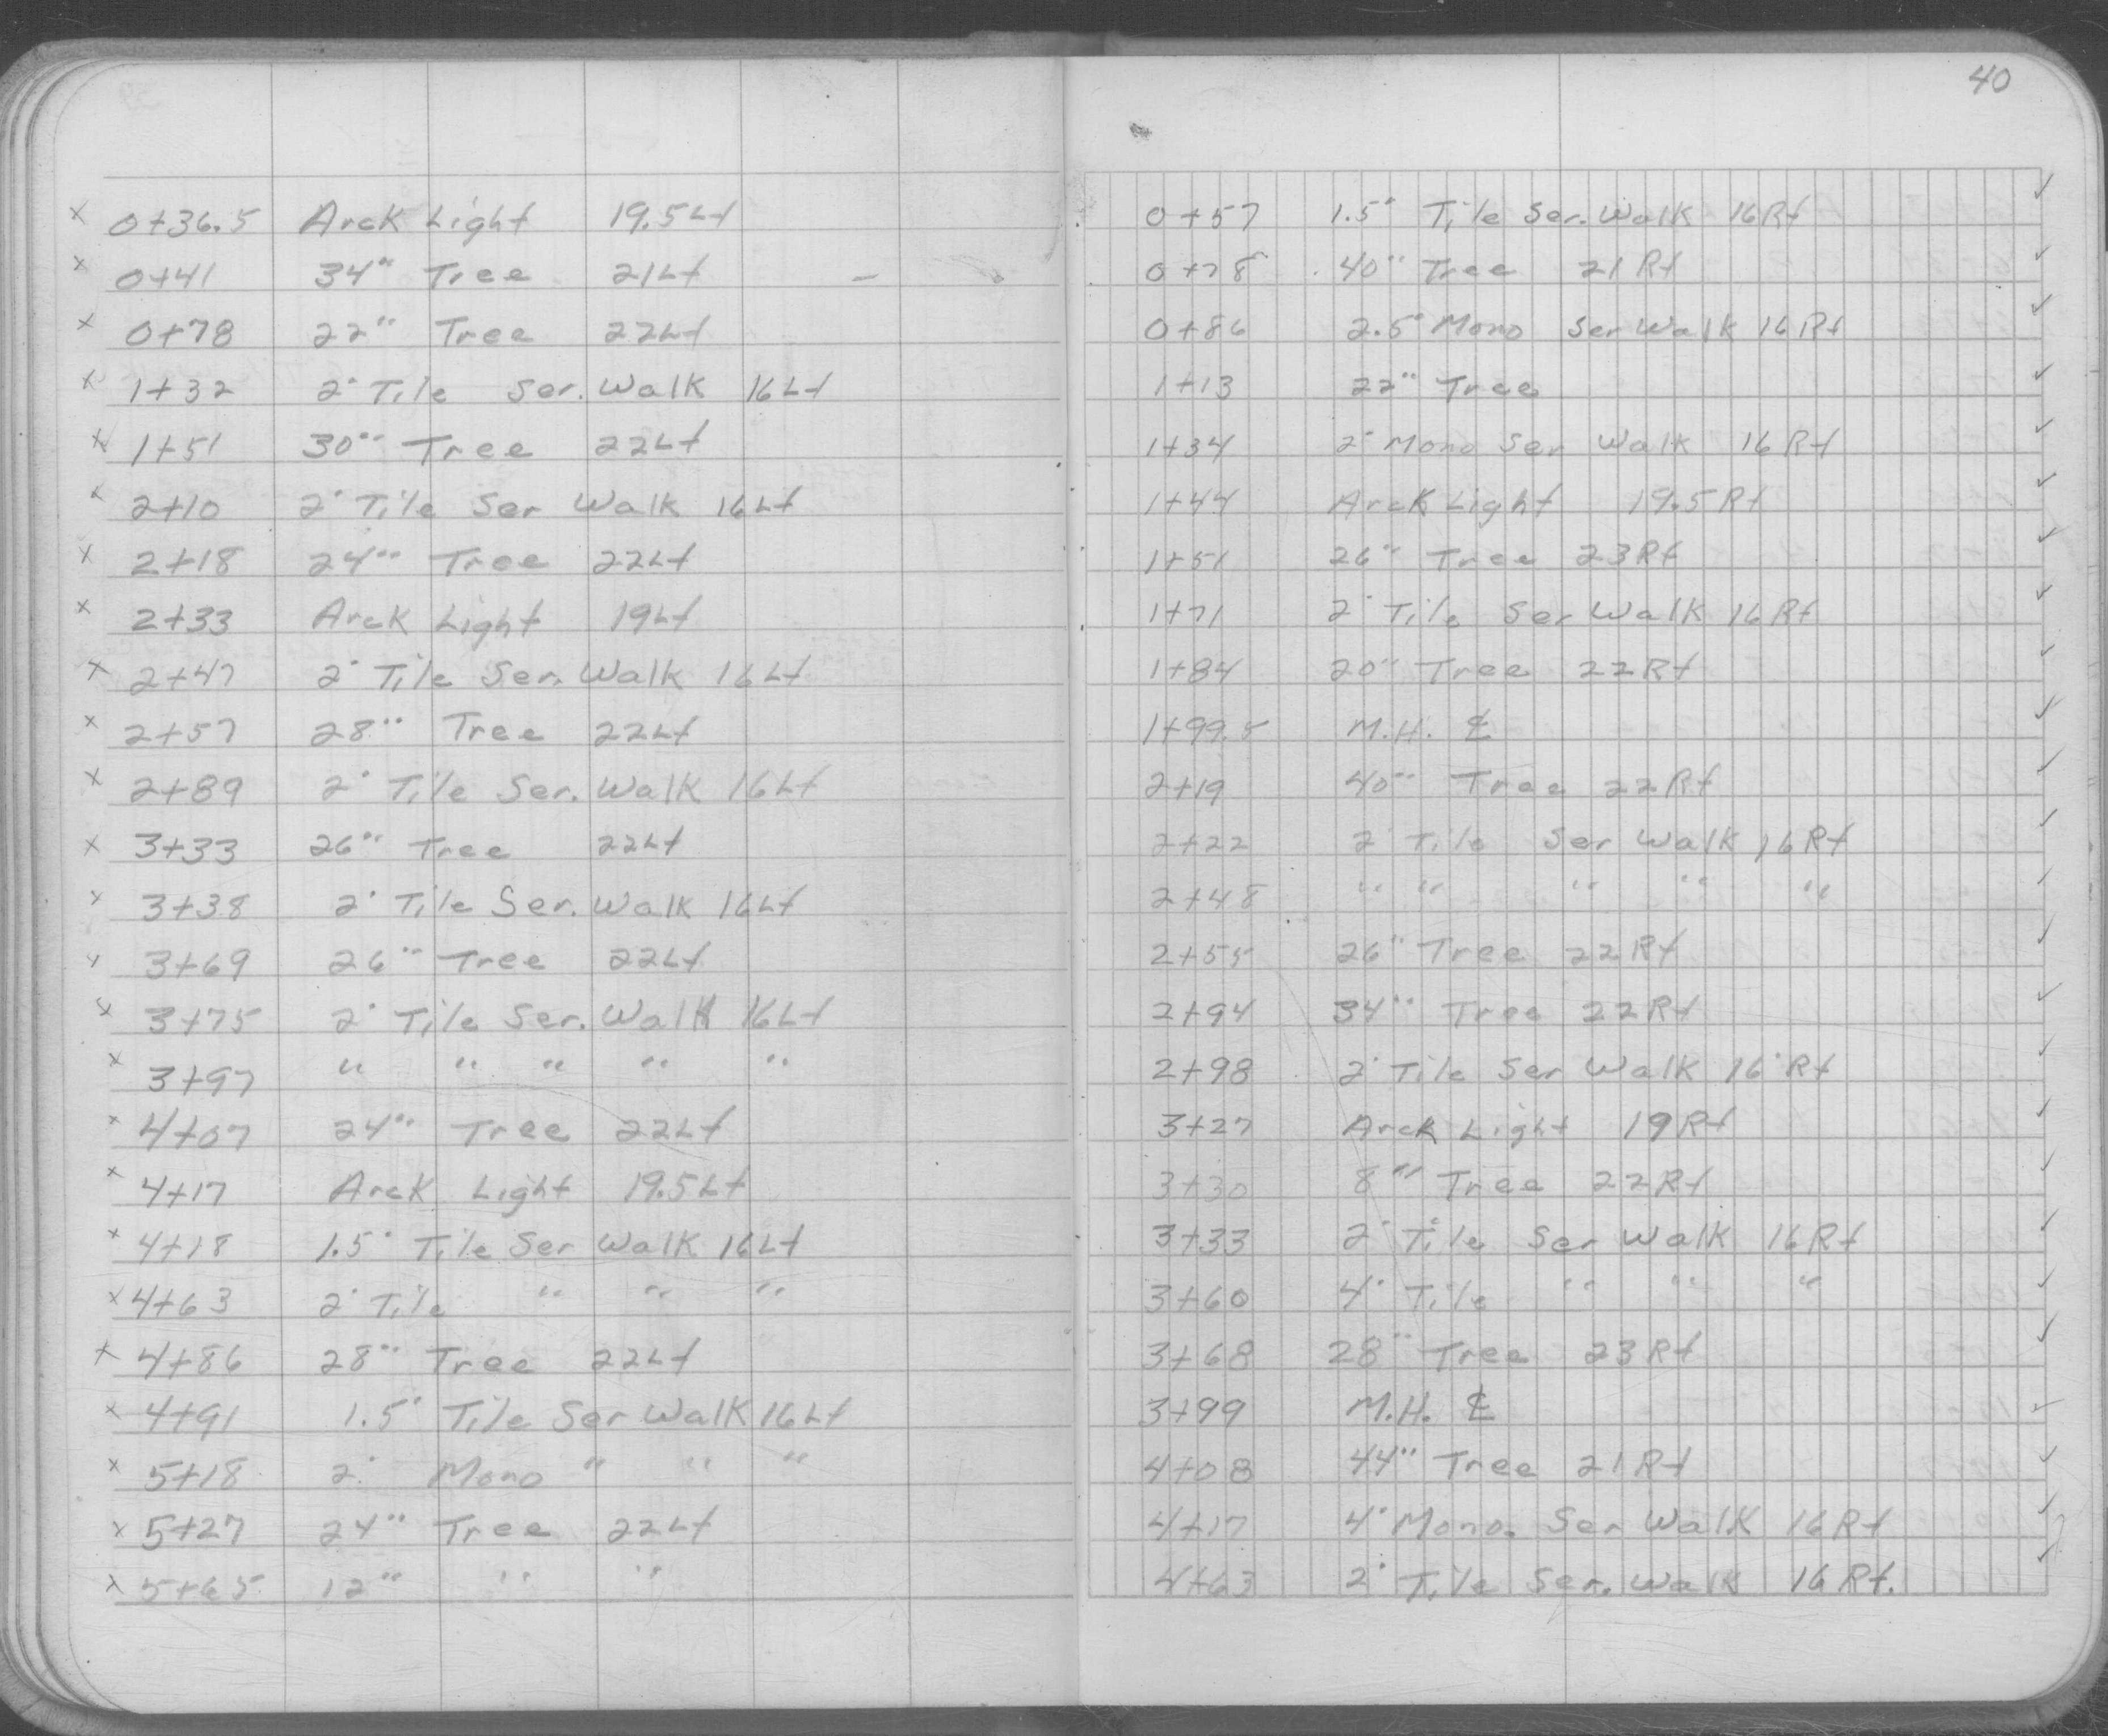 40
x 0+36.5 Arck Light 19.5Lt
x 0+41 34" Tree 21Lt –
x 0+78 22" Tree 22Lt
x 1+32 2' Tile Ser. Walk 16Lt
x 1+51 30" Tree 22Lt
x 2+10 2' Tile Ser Walk 16Lt
x 2+18 24" Tree 22Lt
x 2+33 Arck Light 19Lt
x 2+47 2' Tile Ser. Walk 16Lt
x 2+57 28" Tree 22Lt
x 2+89 2' Tile Ser. Walk 16Lt
x 3+33 26" Tree 22Lt
x 3+38 2' Tile Ser. Walk 16Lt
x 3+69 26" Tree 22Lt
x 3+75 2' Tile Ser. Walk 16Lt
x 3+97 " " " " "
x 4+07 24" Tree 22Lt
x 4+17 Arck Light 19.5Lt
x 4+18 1.5' Tile Ser Walk 16Lt
x 4+63 2' Tile " " "
x 4+86 28" Tree 22Lt
x 4+91 1.5' Tile Ser Walk 16Lt
x 5+18 2' Mono " " "
x 5+27 24" Tree 22Lt
x 5+65 12" " "
0+57 1.5' Tile Ser. Walk 16Rt ✓
0+78 40" Tree 21Rt ✓
0+86 2.5' Mono Ser Walk 16Rt ✓
1+13 22" Tree ✓
1+34 2' Mono Ser Walk 16Rt ✓
1+44 Arck Light 19.5Rt ✓
1+51 26" Tree 23Rt ✓
1+71 2' Tile Ser Walk 16Rt ✓
1+84 20" Tree 22Rt ✓
1+99.5 M.H. ℄ ✓
2+19 40" Tree 22Rt ✓
2+22 2' Tile Ser Walk 16Rt ✓
2+48 " " " " " ✓
2+55 26" Tree 22Rt ✓
2+94 34" Tree 22Rt ✓
2+98 2' Tile Ser Walk 16'Rt ✓
3+27 Arck Light 19Rt ✓
3+30 8" Tree 22Rt ✓
3+33 2' Tile Ser Walk 16Rt ✓
3+60 4' Tile " " " ✓
3+68 28" Tree 23Rt ✓
3+99 M.H. ℄ ✓
4+08 44" Tree 21Rt ✓
4+17 4' Mono. Ser Walk 16Rt ✓
4+63 2' Tile Ser. Walk 16Rt. ✓